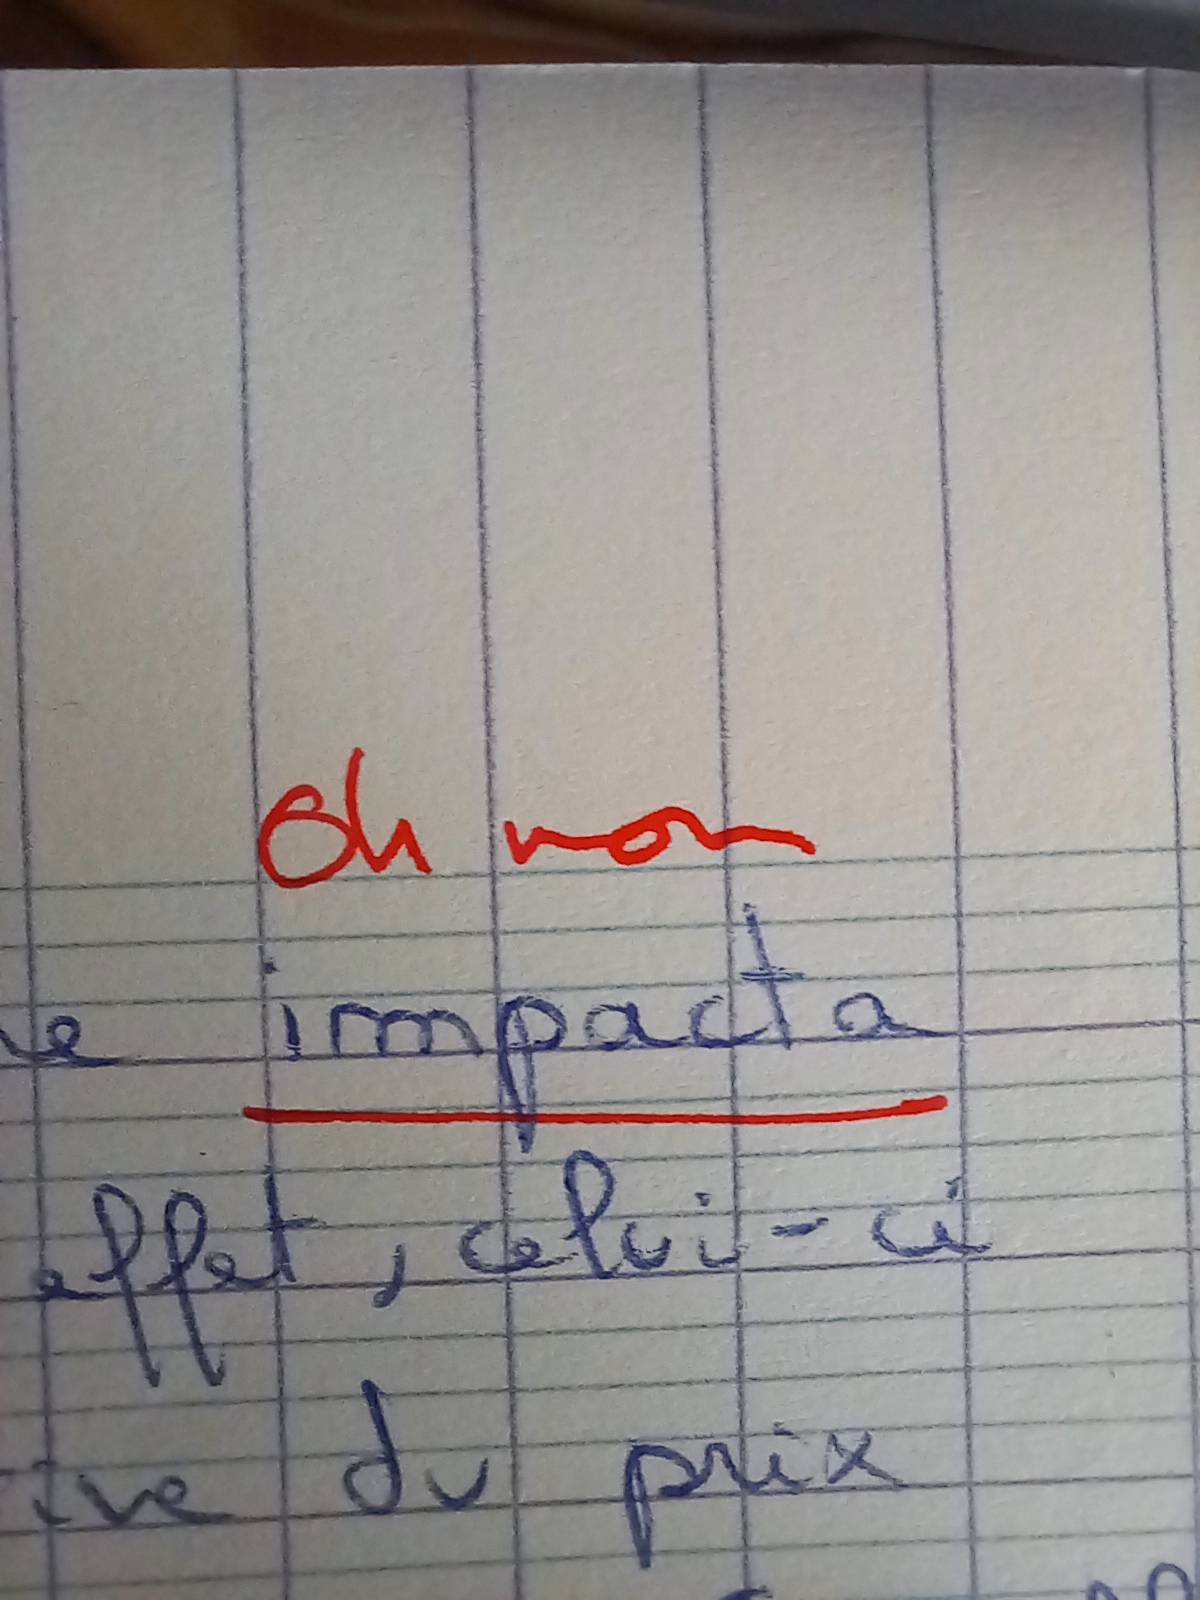 Oh non
impacta
effet, celui-ci
du prix